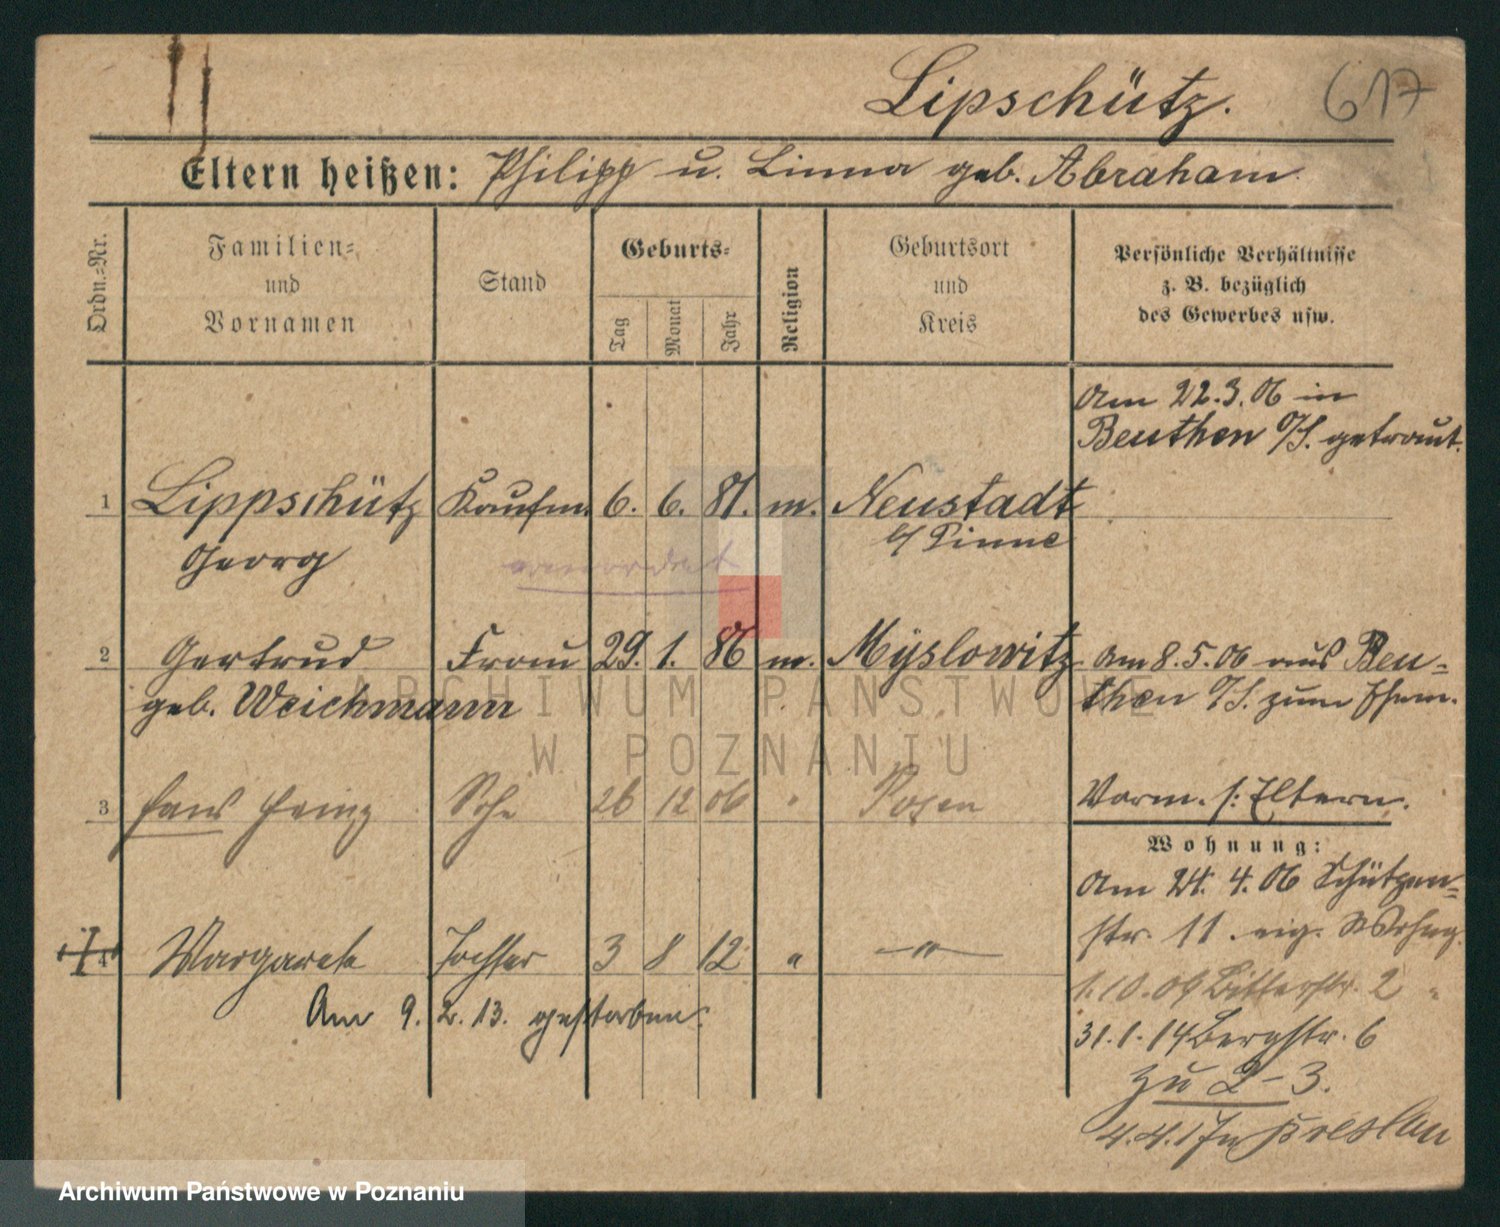 Lipschütz. 617
Eltern heißen: Philipp u. Linna geb. Abraham.
Ordn.=Nr.
Familien=
und
Vornamen
Stand
Geburts=
Tag
Monat
Jahr
Religion
Geburtsort
und
Kreis
Persönliche Verhältnisse
z. B. bezüglich
des Gewerbes usw.
Am 22.3.06 in
Beuthen O/S. getraut.
1 Lippschütz Kaufm. 6. 6. 81. m. Neustadt
Georg b/ Pinne
2 Gertrud Frau 29. 1. 86 m. Myslowitz Am 8.5.06 aus Beu=
geb. Weichmann then O/S. zum Ehem.
3 Hans Heinz Sohn 26 12 06 " Posen
Vorm. s: Eltern.
Wohnung:
Am 24. 4. 06 Schützen=
str. 11. eig. Wohng.
4 Margarete Tochter 3 8 12 " — " —
Am 9. 2. 13. gestorben.
1.10.09 Ritterstr. 2 "
31.1.14 Bergstr. 6
zu 2-3.
Breslau
ARCHIWUM PAŃSTWOWE
W POZNANIU
Archiwum Państwowe w Poznaniu